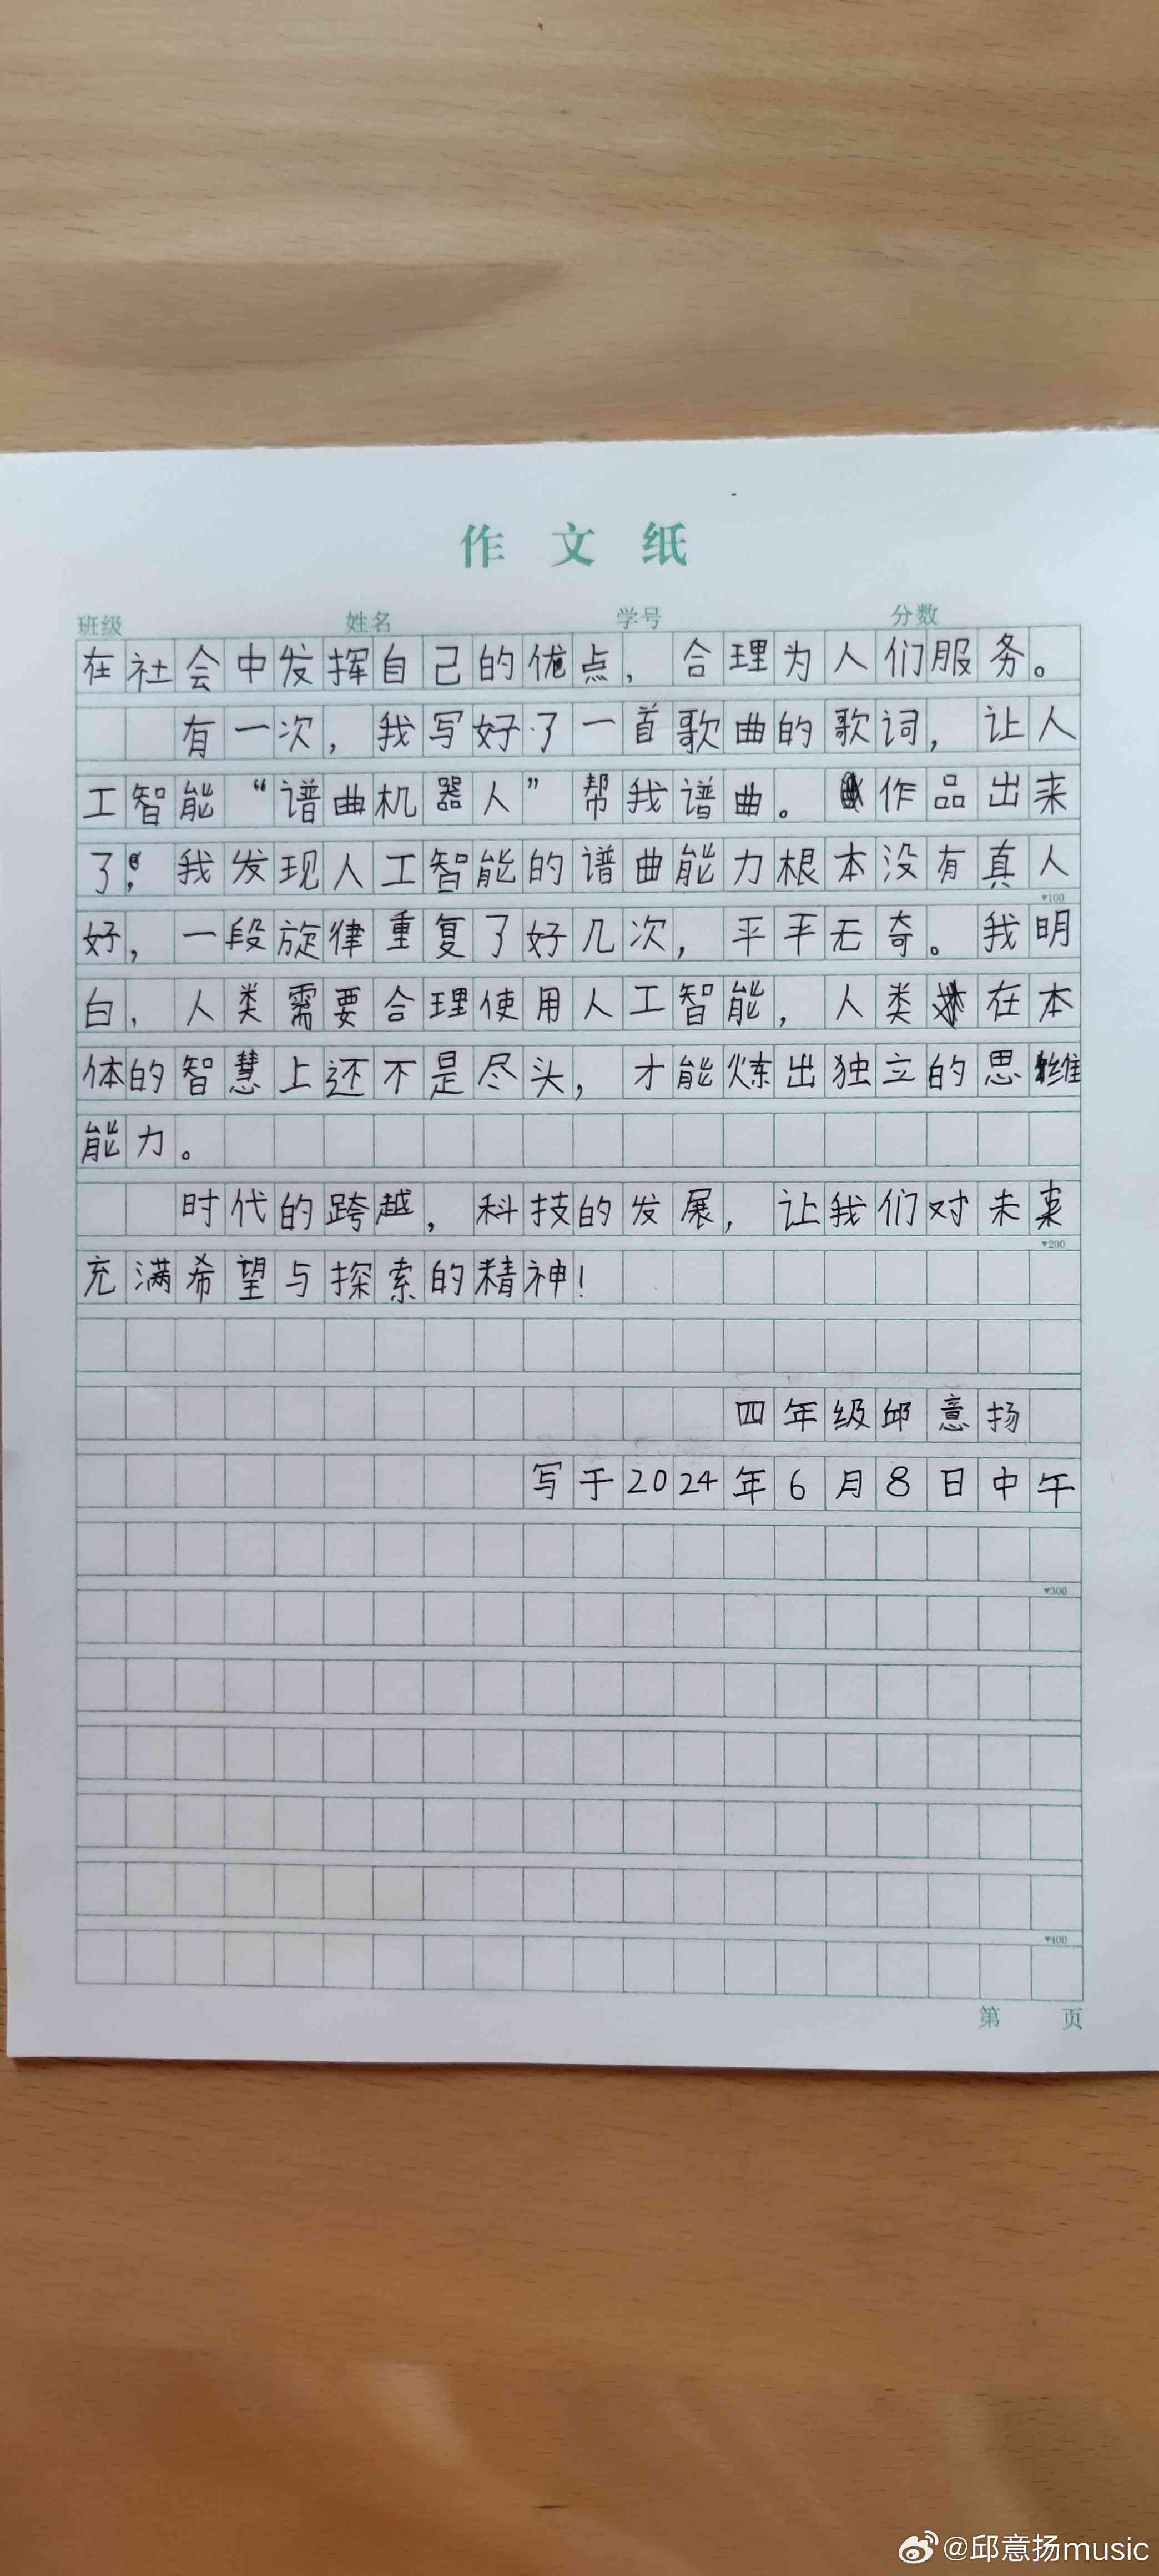 作文纸
班级 姓名 学号 分数
在社会中发挥自己的优点，合理为人们服务。
有一次，我写好了一首歌曲的歌词，让人
工智能“谱曲机器人”帮我谱曲。作品出来
了！我发现人工智能的谱曲能力根本没有真人
▼100
好，一段旋律重复了好几次，平平无奇。我明
白，人类需要合理使用人工智能，人类在本
体的智慧上还不是尽头，才能炼出独立的思维
能力。
时代的跨越，科技的发展，让我们对未来
▼200
充满希望与探索的精神！
四年级邱意扬
写于2024年6月8日中午
▼300
▼400
第 页
@邱意扬music